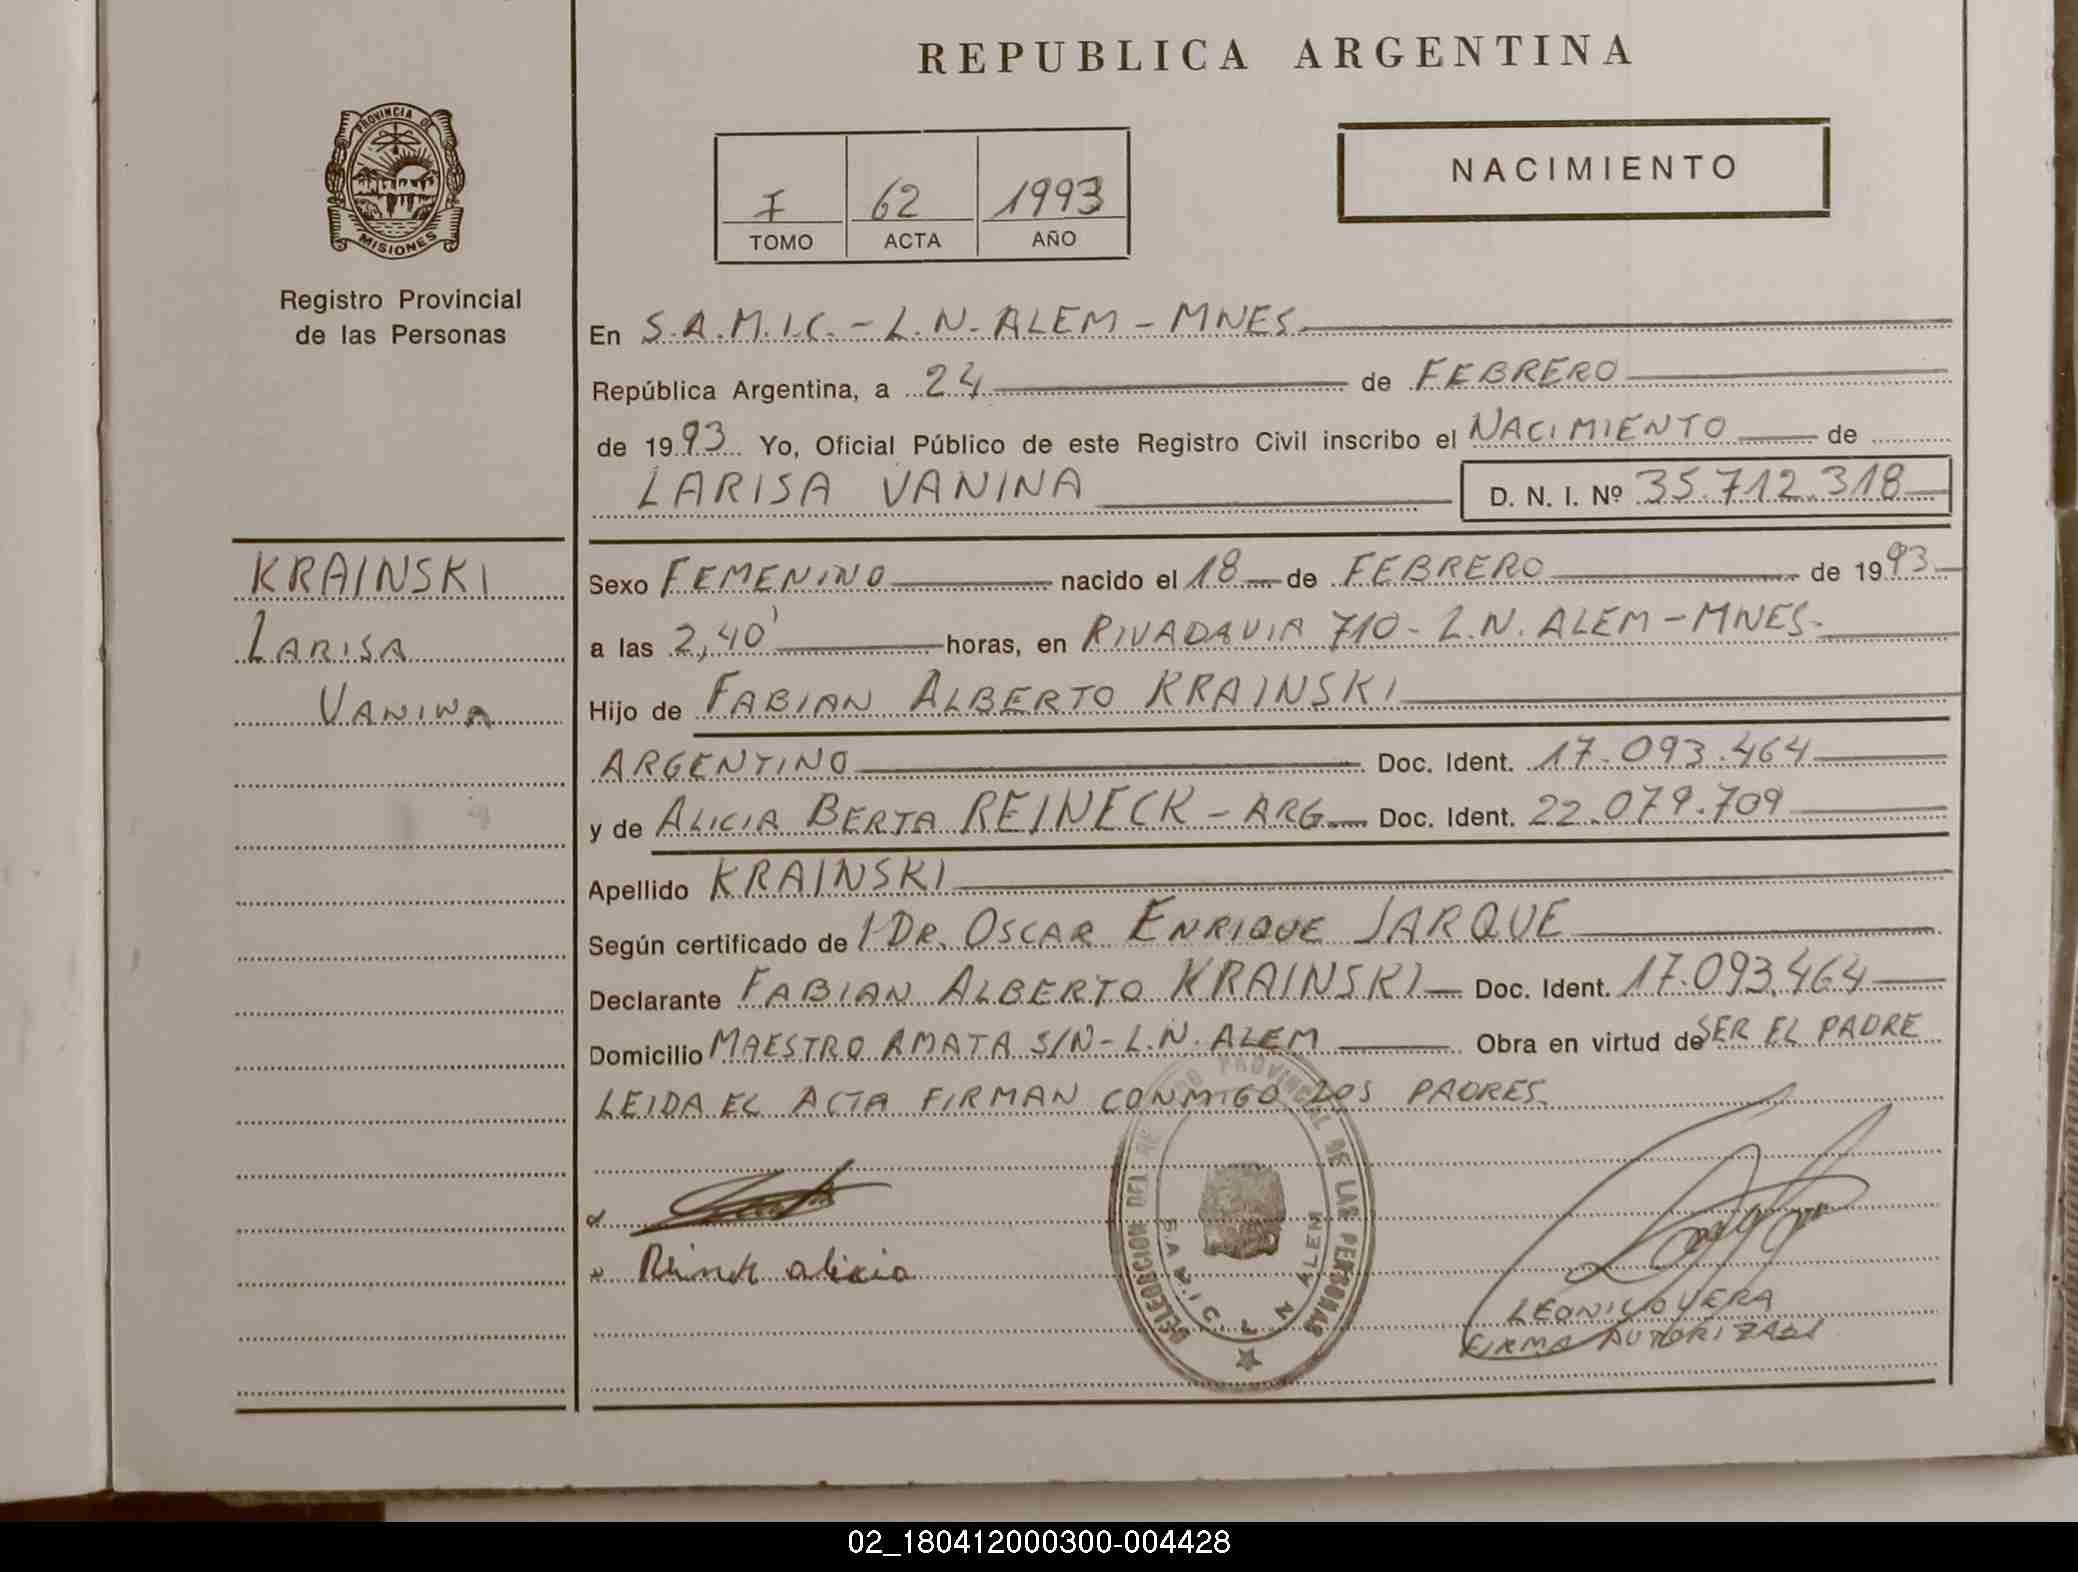 REPUBLICA ARGENTINA
PROVINCIA DE
MISIONES
Registro Provincial
de las Personas
I 62 1993
TOMO ACTA AÑO
NACIMIENTO
En S.A.M.I.C. - L.N. ALEM - MNES
República Argentina, a 24 de FEBRERO
de 1993 Yo, Oficial Público de este Registro Civil inscribo el NACIMIENTO de
LARISA VANINA D. N. I. Nº 35.712.318
KRAINSKI
LARISA
VANINA
Sexo FEMENINO nacido el 18 de FEBRERO de 1993
a las 2,40' horas, en RIVADAVIA 710 - L.N. ALEM - MNES.
Hijo de FABIAN ALBERTO KRAINSKI
ARGENTINO Doc. Ident. 17.093.464
y de ALICIA BERTA REINECK - ARG. Doc. Ident. 22.079.709
Apellido KRAINSKI
Según certificado de DR. OSCAR ENRIQUE JARQUE
Declarante FABIAN ALBERTO KRAINSKI Doc. Ident. 17.093.464
Domicilio MAESTRO AMATA S/N - L.N. ALEM Obra en virtud de SER EL PADRE
LEIDA EL ACTA FIRMAN CONMIGO LOS PADRES.
DELEGACION DEL REGISTRO PROVINCIAL DE LAS PERSONAS
S.A.M.I.C. L N ALEM
alicia
VERA
FIRMA AUTORIZADA
02_180412000300-004428